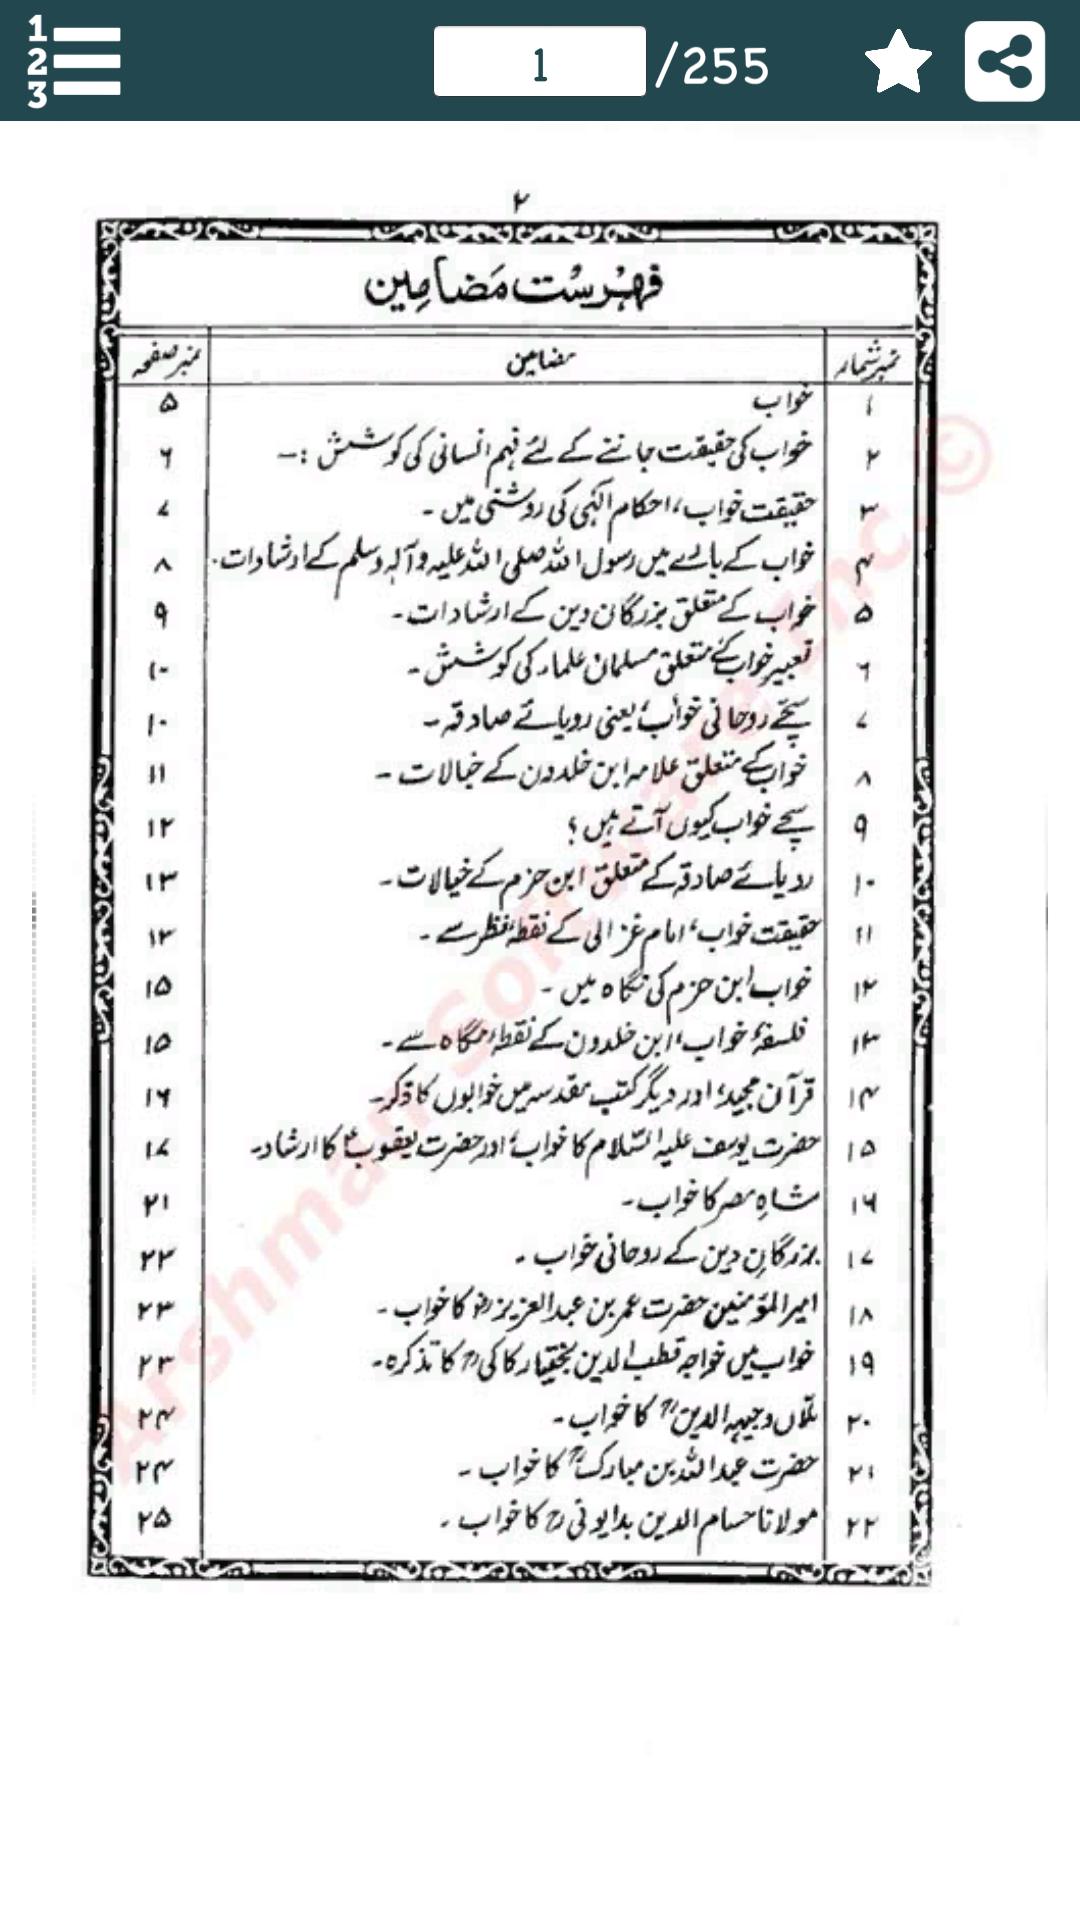 1
2
3
1 /255
۲
فہرست مضامین
نمبر شمار مضامین نمبر صفحہ
۱ خواب ۵
۲ خواب کی حقیقت جاننے کے لئے فہم انسانی کی کوشش :— ۶
۳ حقیقت خواب، احکام الٰہی کی روشنی میں۔ ۷
۴ خواب کے بارے میں رسول اللہ صلی اللہ علیہ و آلہ وسلم کے ارشادات۔ ۸
۵ خواب کے متعلق بزرگان دین کے ارشادات۔ ۹
۶ تعبیر خواب کے متعلق مسلمان علماء کی کوشش۔ ۱۰
۷ سچے روحانی خواب، یعنی رویائے صادقہ۔ ۱۰
۸ خواب کے متعلق علامہ ابن خلدون کے خیالات۔ ۱۱
۹ سچے خواب کیوں آتے ہیں؟ ۱۲
۱۰ رویائے صادقہ کے متعلق ابن حزم کے خیالات۔ ۱۳
۱۱ حقیقت خواب، امام غزالی کے نقطۂ نظر سے۔ ۱۳
۱۲ خواب ابن حزم کی نگاہ میں۔ ۱۵
۱۳ فلسفۂ خواب، ابن خلدون کے نقطۂ نگاہ سے۔ ۱۵
۱۴ قرآن مجید، اور دیگر کتب مقدسہ میں خوابوں کا ذکر۔ ۱۶
۱۵ حضرت یوسف علیہ السّلام کا خواب، اور حضرت یعقوبؑ کا ارشاد۔ ۱۷
۱۶ شاہِ مصر کا خواب۔ ۲۱
۱۷ بزرگانِ دین کے روحانی خواب۔ ۲۲
۱۸ امیر المؤمنین حضرت عمر بن عبدالعزیزؓ کا خواب۔ ۲۳
۱۹ خواب میں خواجہ قطب الدین بختیار کاکیؒ کا تذکرہ۔ ۲۳
۲۰ ملّاں وجیہہ الدینؒ کا خواب۔ ۲۴
۲۱ حضرت عبداللہ بن مبارکؒ کا خواب۔ ۲۴
۲۲ مولانا حسام الدین بدایونیؒ کا خواب۔ ۲۵
Arshman Software Inc. ©